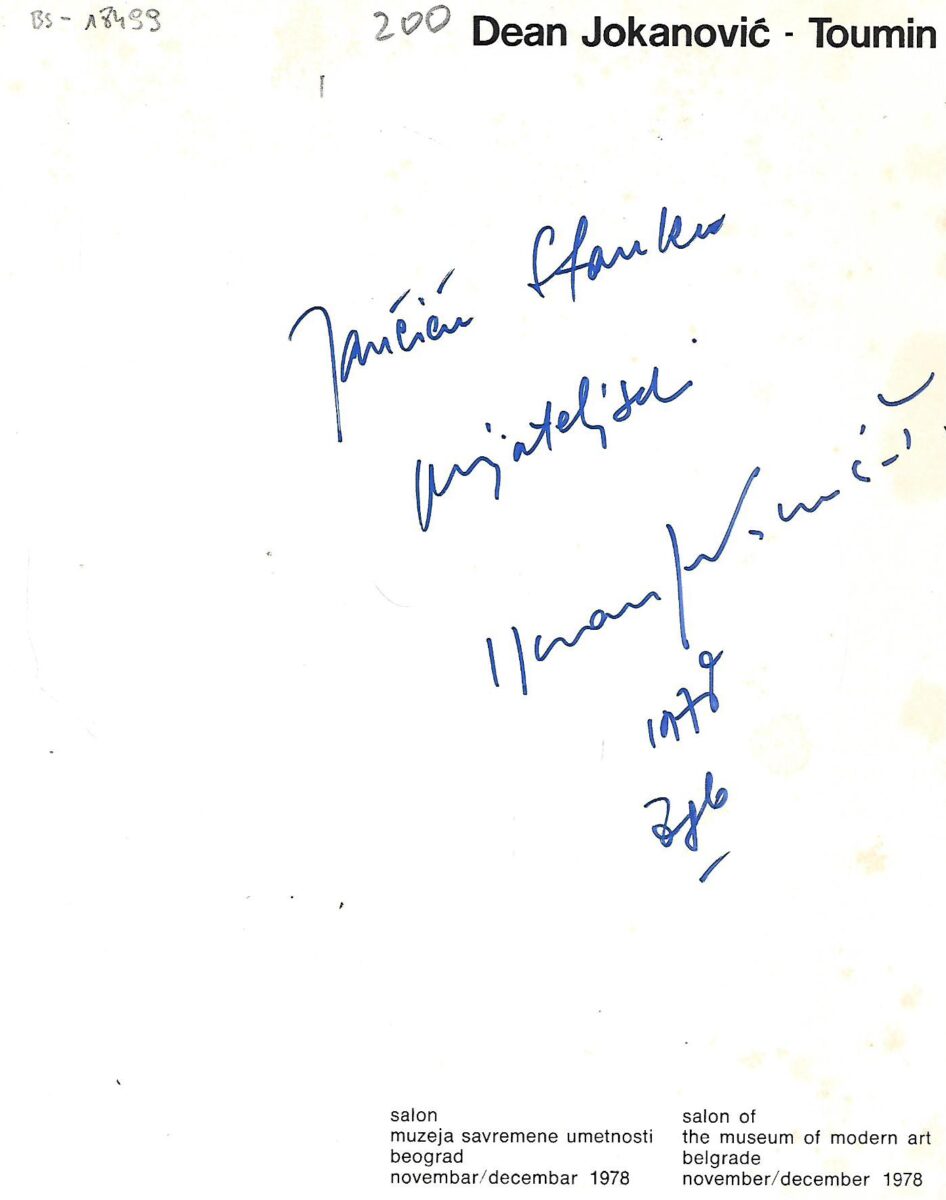 BS - 18499
200
Dean Jokanović - Toumin
Jančiću Stanku
prijateljski
1978
Zgb
salon
muzeja savremene umetnosti
beograd
novembar/decembar 1978
salon of
the museum of modern art
belgrade
november/december 1978